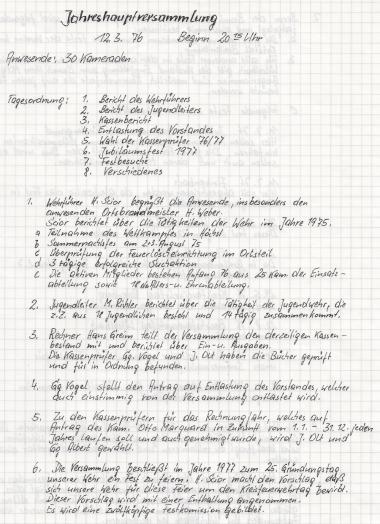 Jahreshauptversammlung
12.3. 76 Beginn 20 15 Uhr
Anwesende: 30 Kameraden
Tagesordnung: 1. Bericht des Wehrführers
2. Bericht des Jugendleiters
3. Kassenbericht
4. Entlastung des Vorstandes
5. Wahl der Kassenprüfer 76/77
6. Jubiläumsfest 1977
7. Festbesuche
8. Verschiedenes
1. Wehrführer H. Scior begrüßt die Anwesende, insbesonders den
anwesenden Ortsbrandmeister H. Weber.
Scior berichtet über die Tätigkeiten der Wehr im Jahre 1975.
a Teilnahme des Wettkampfes in Höchst
b Sommernachtsfes am 2+3. August 75
c Überprüfung der Feuerlöscheinrichtung im Ortsteil
d 3 tägige erfolgreiche Suchaktion
e Die aktiven Mitglieder bestehen Anfang 76 aus 25 Kam. der Einsatz-
abteilung sowie 18 Alters- u. Ehrenabteilung.
2. Jugendleiter M. Richler berichtet über die Tätigkeit der Jugendwehr, die
z.Z. aus 18 Jugendlichen besteht und 14 tägig zusammenkommt.
3. Rechner Hans Greim teilt der Versammlung den derzeitigen Kassen-
bestand mit und berichtet über Ein- u. Ausgaben.
Die Kassenprüfer Gg. Vogel und J. Olt haben die Bücher geprüft
und für in Ordnung befunden.
4. Gg Vogel stellt den Antrag auf Entlastung des Vorstandes, welcher
auch einstimmig von der Versammlung entlastet wird.
5. Zu den Kassenprüfern für das Rechnungsjahr, welches auf
Antrag des Kam. Otto Marquard in Zukunft vom 1.1. - 31.12. jeden
Jahres laufen soll und auch genehmigt wurde, wird J. Olt und
Gg Albert gewählt.
6. Die Versammlung beschließt im Jahre 1977 zum 25. Gründungstag
unserer Wehr ein Fest zu feiern. H. Scior macht den Vorschlag, daß
sich unsere Wehr für diese Feier um den Kreisfeuerwehrtag bewirbt.
Dieser Vorschlag wird mit einer Enthaltung angenommen.
Es wird eine zwölfköpfige Festkomission gebildet.